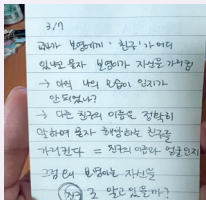 3/7
교사가 보영에게 '친구'가 어디
있냐고 묻자 보영이가 자신을 가리킴
→ 아직 나의 모습이 인지가
안 되었나?
→ 다른 친구의 이름을 정확히
말하며 묻자 해당하는 친구를
가리킨다 = 친구의 이름과 얼굴인지
그럼 보영이는 자신을
친구 로 알고 있을까?